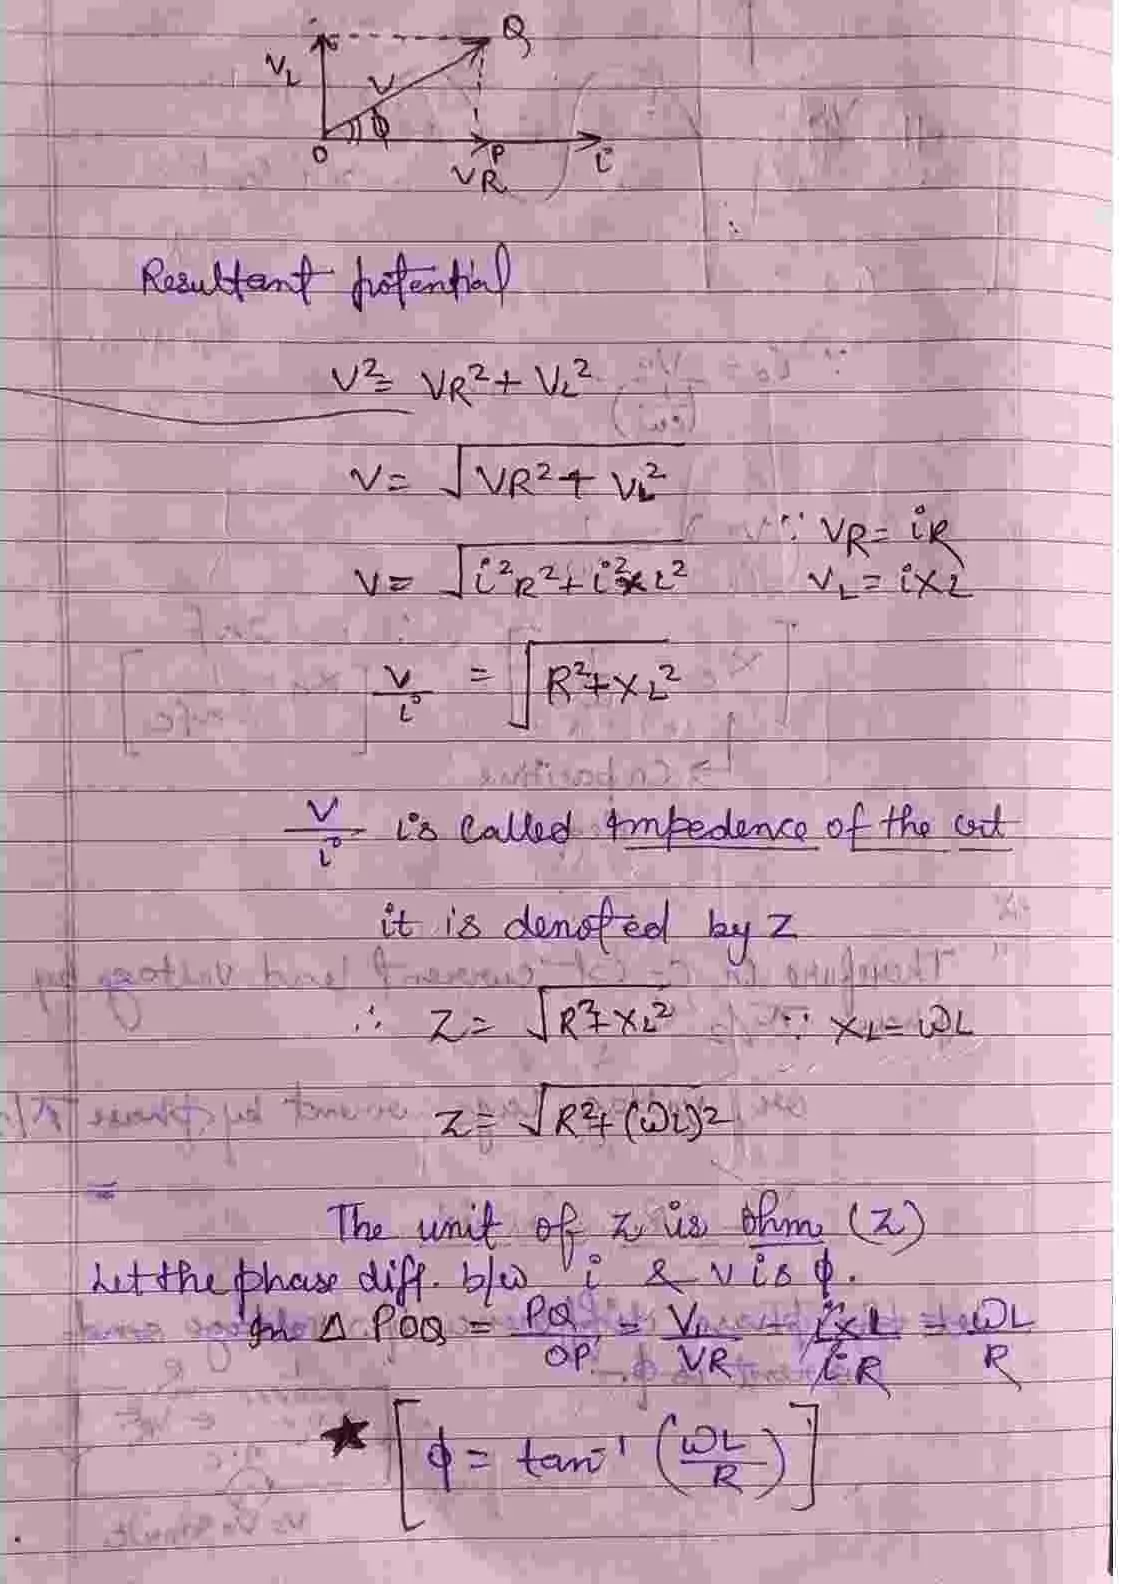 Q
V_L
V
ϕ
O
P
V_R
i
Resultant potential
V² = VR² + V_L²
V = √(VR² + V_L²)
∵ VR = iR
V = √(i²R² + i²X_L²)
V_L = iX_L
V/i = √(R² + X_L²)
V/i is called Impedence of the cct
it is denoted by Z
∴ Z = √(R² + X_L²) ∵ X_L = ωL
Z = √(R² + (ωL)²)
The unit of Z is ohm (Z)
Let the phase diff. b/w i & V is ϕ.
In Δ POQ = PQ/OP = V_L/VR = iX_L/iR = ωL/R
★ [ϕ = tan⁻¹ (ωL/R)]